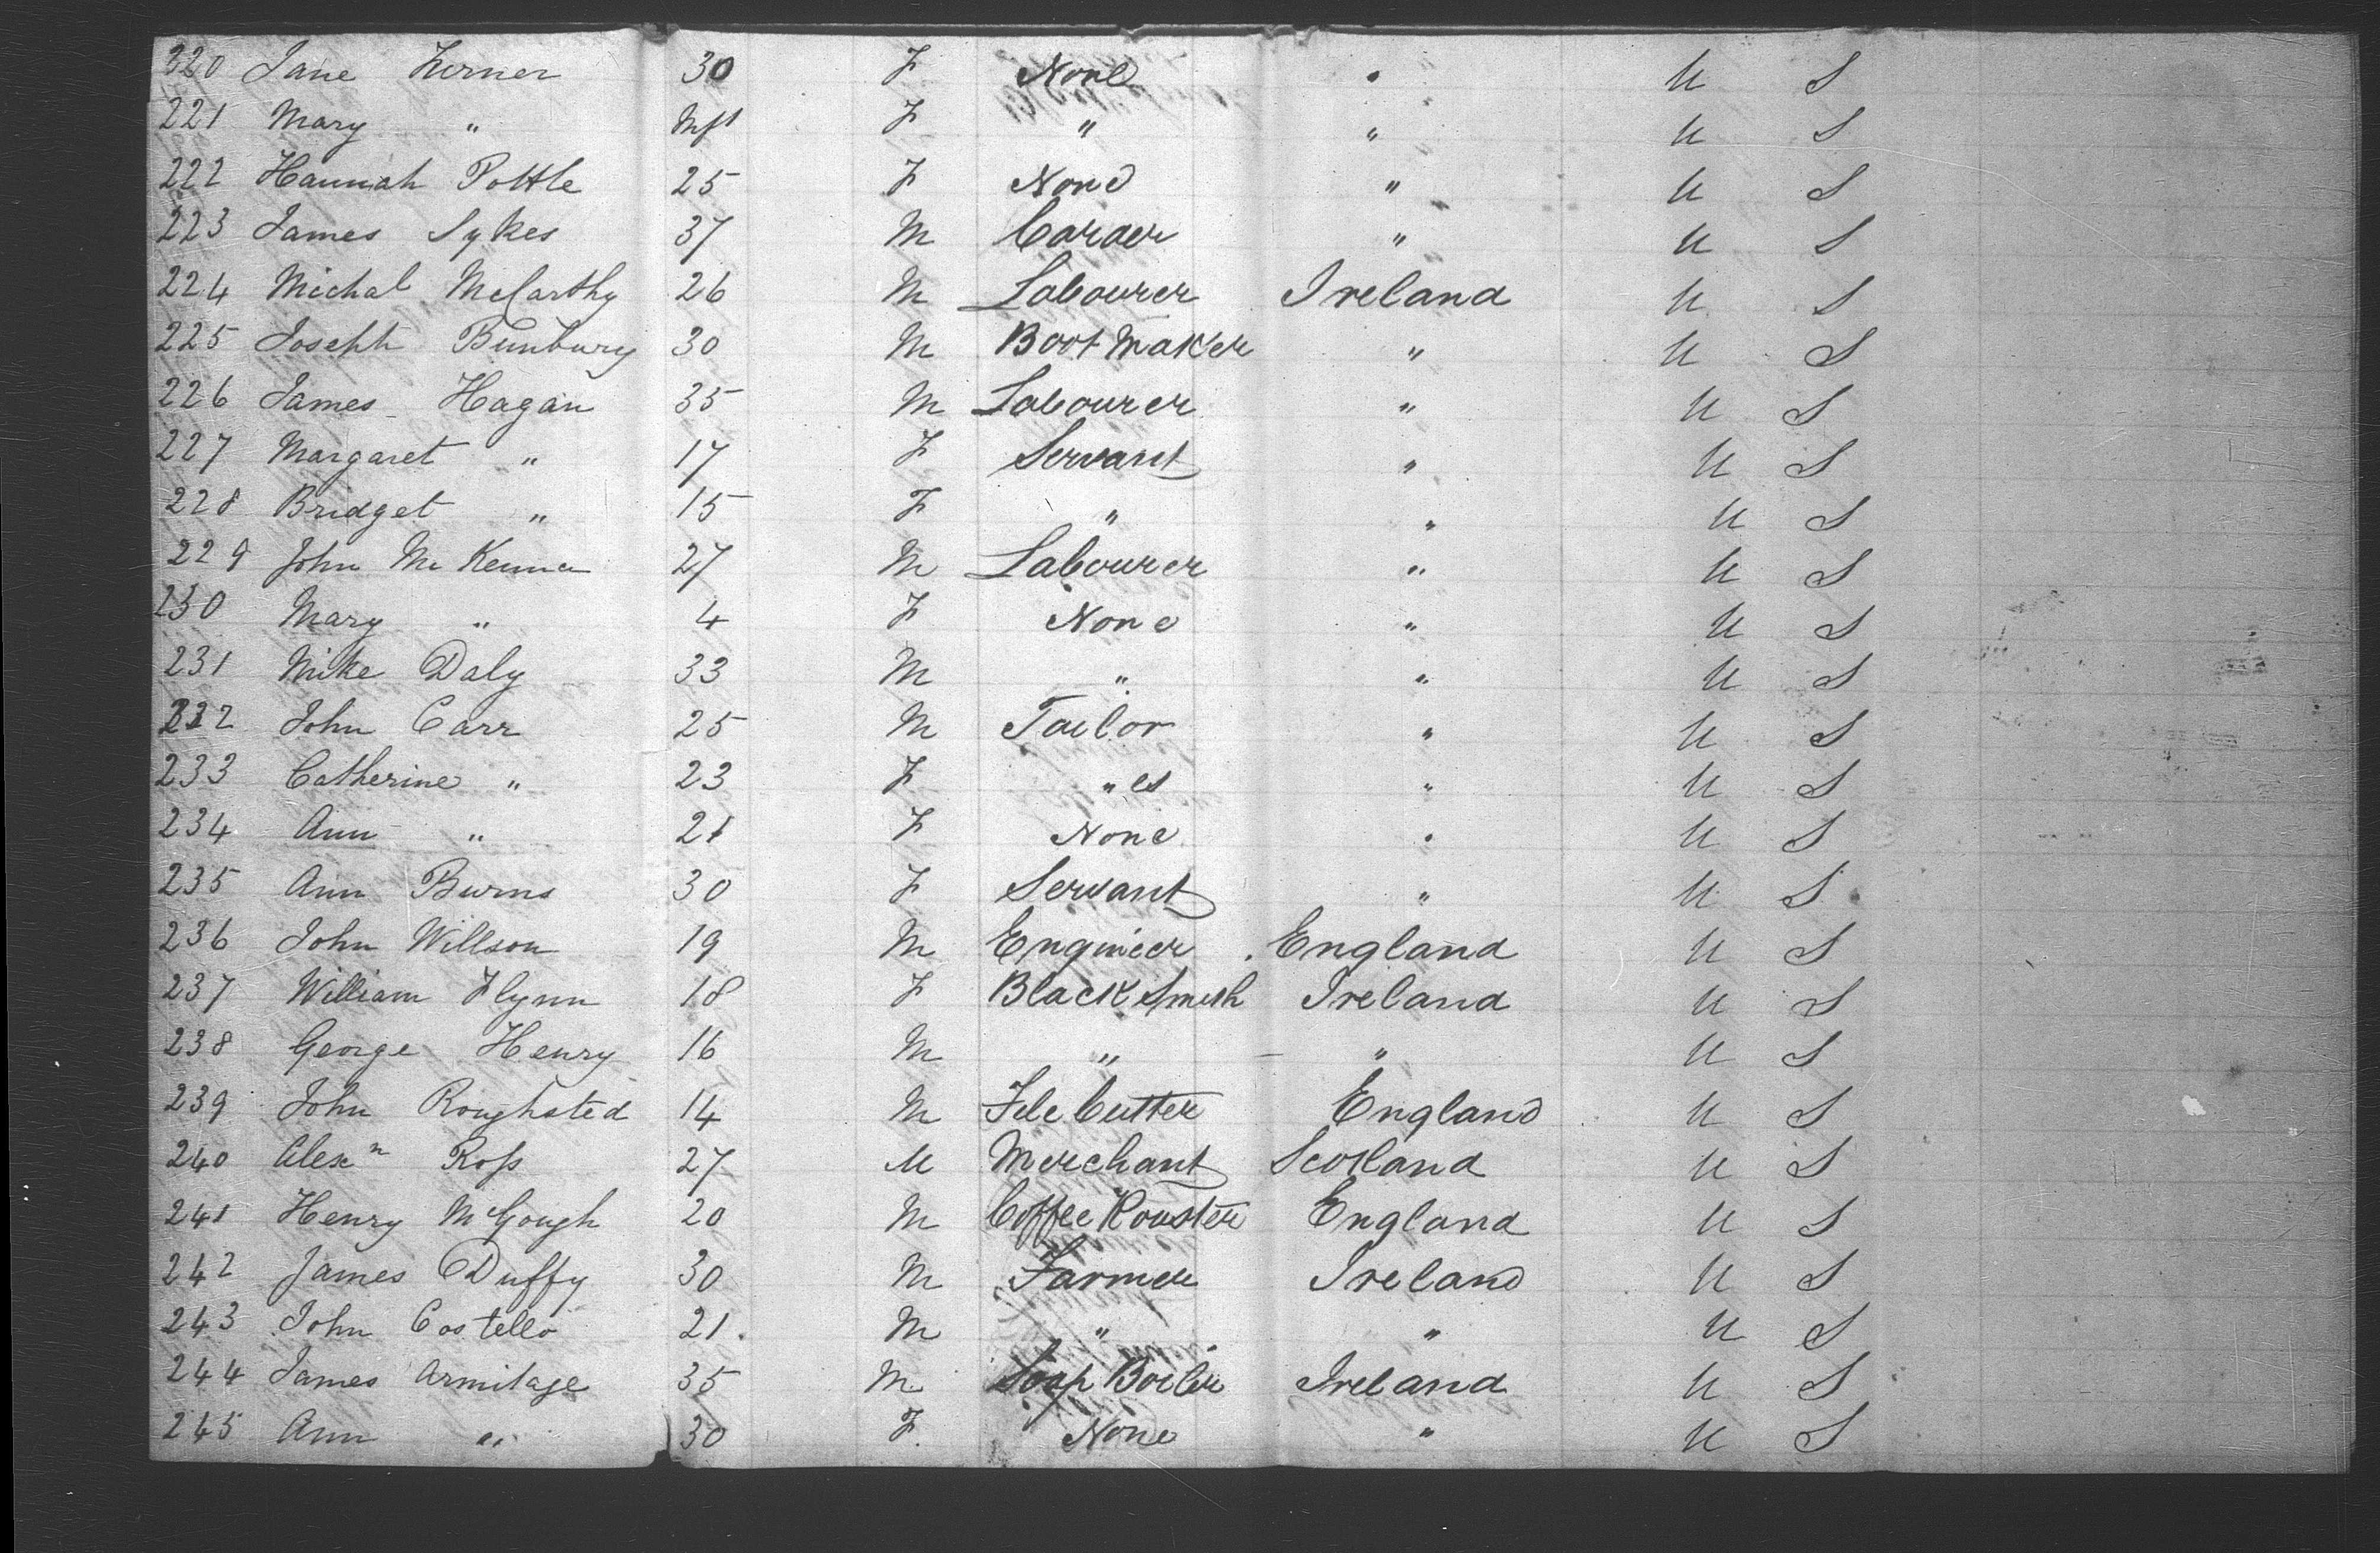 320 Jane Kerner 30 F None " U S
221 Mary " Inft F " " U S
222 Hannah Pottle 25 F None " U S
223 James Sykes 37 M Carder " U S
224 Michal McCarthy 26 M Labourer Ireland U S
225 Joseph Bunbury 30 M Boot Maker " U S
226 James Hagan 35 M Labourer " U S
227 Margaret " 17 F Servant " U S
228 Bridget " 15 F " " U S
229 John McKenna 27 M Labourer " U S
230 Mary " 4 F None " U S
231 Mike Daly 33 M " " U S
232 John Carr 25 M Tailor " U S
233 Catherine " 23 F " es " U S
234 Ann " 21 F None " U S
235 Ann Burns 30 F Servant " U S
236 John Willson 19 M Engineer England U S
237 William Flynn 18 F Black Smith Ireland U S
238 George Henry 16 M " " U S
239 John Roughsted 14 M File Cutter England U S
240 Alexr Ross 27 M Merchant Scotland U S
241 Henry McGough 20 M Coffee Roaster England U S
242 James Duffy 30 M Farmer Ireland U S
243 John Costello 21 M " " U S
244 James Armitage 35 M Soap Boiler Ireland U S
245 Ann " 30 F None " U S